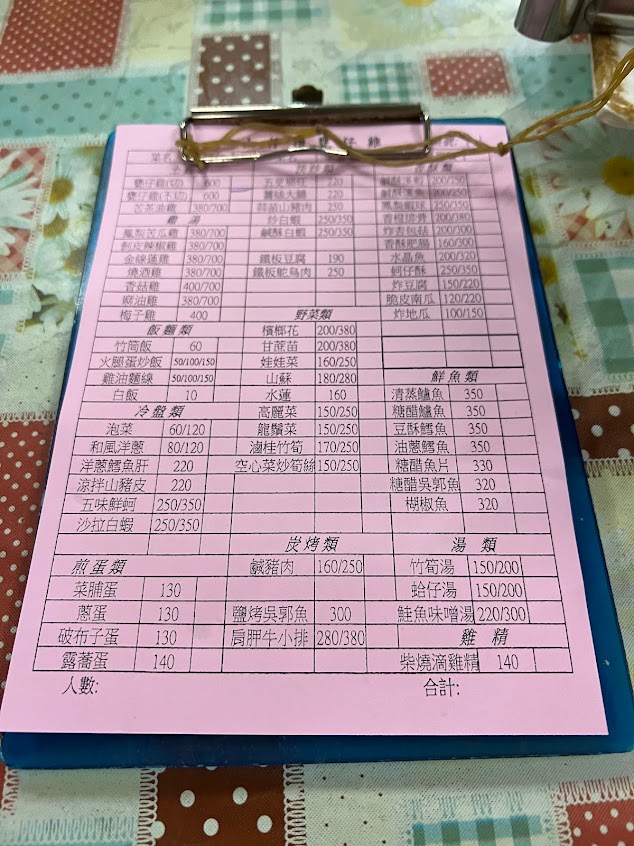 甕仔雞(切) 600
甕仔雞(不切) 600
苦茶油雞 380/700
雞 湯
鳳梨苦瓜雞 380/700
剝皮辣椒雞 380/700
金線蓮雞 380/700
燒酒雞 380/700
香菇雞 400/700
麻油雞 380/700
梅子雞 400
飯麵類
竹筒飯 60
火腿蛋炒飯 50/100/150
雞油麵線 50/100/150
白飯 10
冷盤類
泡菜 60/120
和風洋蔥 80/120
洋蔥鱈魚肝 220
涼拌山豬皮 220
五味鮮蚵 250/350
沙拉白蝦 250/350
煎蛋類
菜脯蛋 130
蔥蛋 130
破布子蛋 130
露蕎蛋 140
220
220
蒜苗山豬肉 250
炒白蝦 250/350
鹹酥白蝦 250/350
鐵板豆腐 190
鐵板鴕鳥肉 250
野菜類
檳榔花 200/380
甘蔗苗 200/380
娃娃菜 160/250
山蘇 180/280
水蓮 160
高麗菜 150/250
龍鬚菜 150/250
滷桂竹筍 170/250
空心菜炒筍絲 150/250
炭烤類
鹹豬肉 160/250
鹽烤吳郭魚 300
肩胛牛小排 280/380
200/250
250/350
香橙排骨 200/380
炸杏包菇 200/300
香酥肥腸 160/300
水晶魚 200/320
蚵仔酥 250/350
炸豆腐 150/220
脆皮南瓜 120/220
炸地瓜 100/150
鮮魚類
清蒸鱸魚 350
糖醋鱸魚 350
豆酥鱈魚 350
油蔥鱈魚 350
糖醋魚片 330
糖醋吳郭魚 320
椒鹽魚 320
湯 類
竹筍湯 150/200
蛤仔湯 150/200
鮭魚味噌湯 220/300
雞 精
柴燒滴雞精 140
人數:
合計: